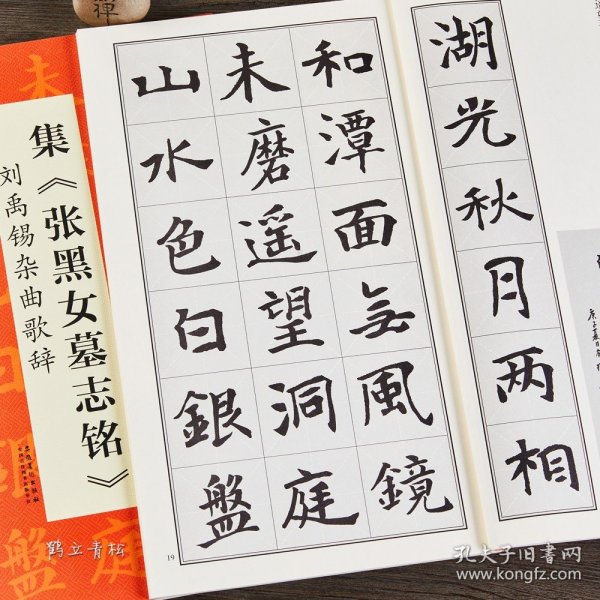 湖光秋月两相
和潭面無風鏡
未磨遥望洞庭
山水色白銀盤
19
集《张黑女墓志铭》
刘禹锡杂曲歌辞
禅
鹤立青松
孔夫子旧书网
www.kongfz.com